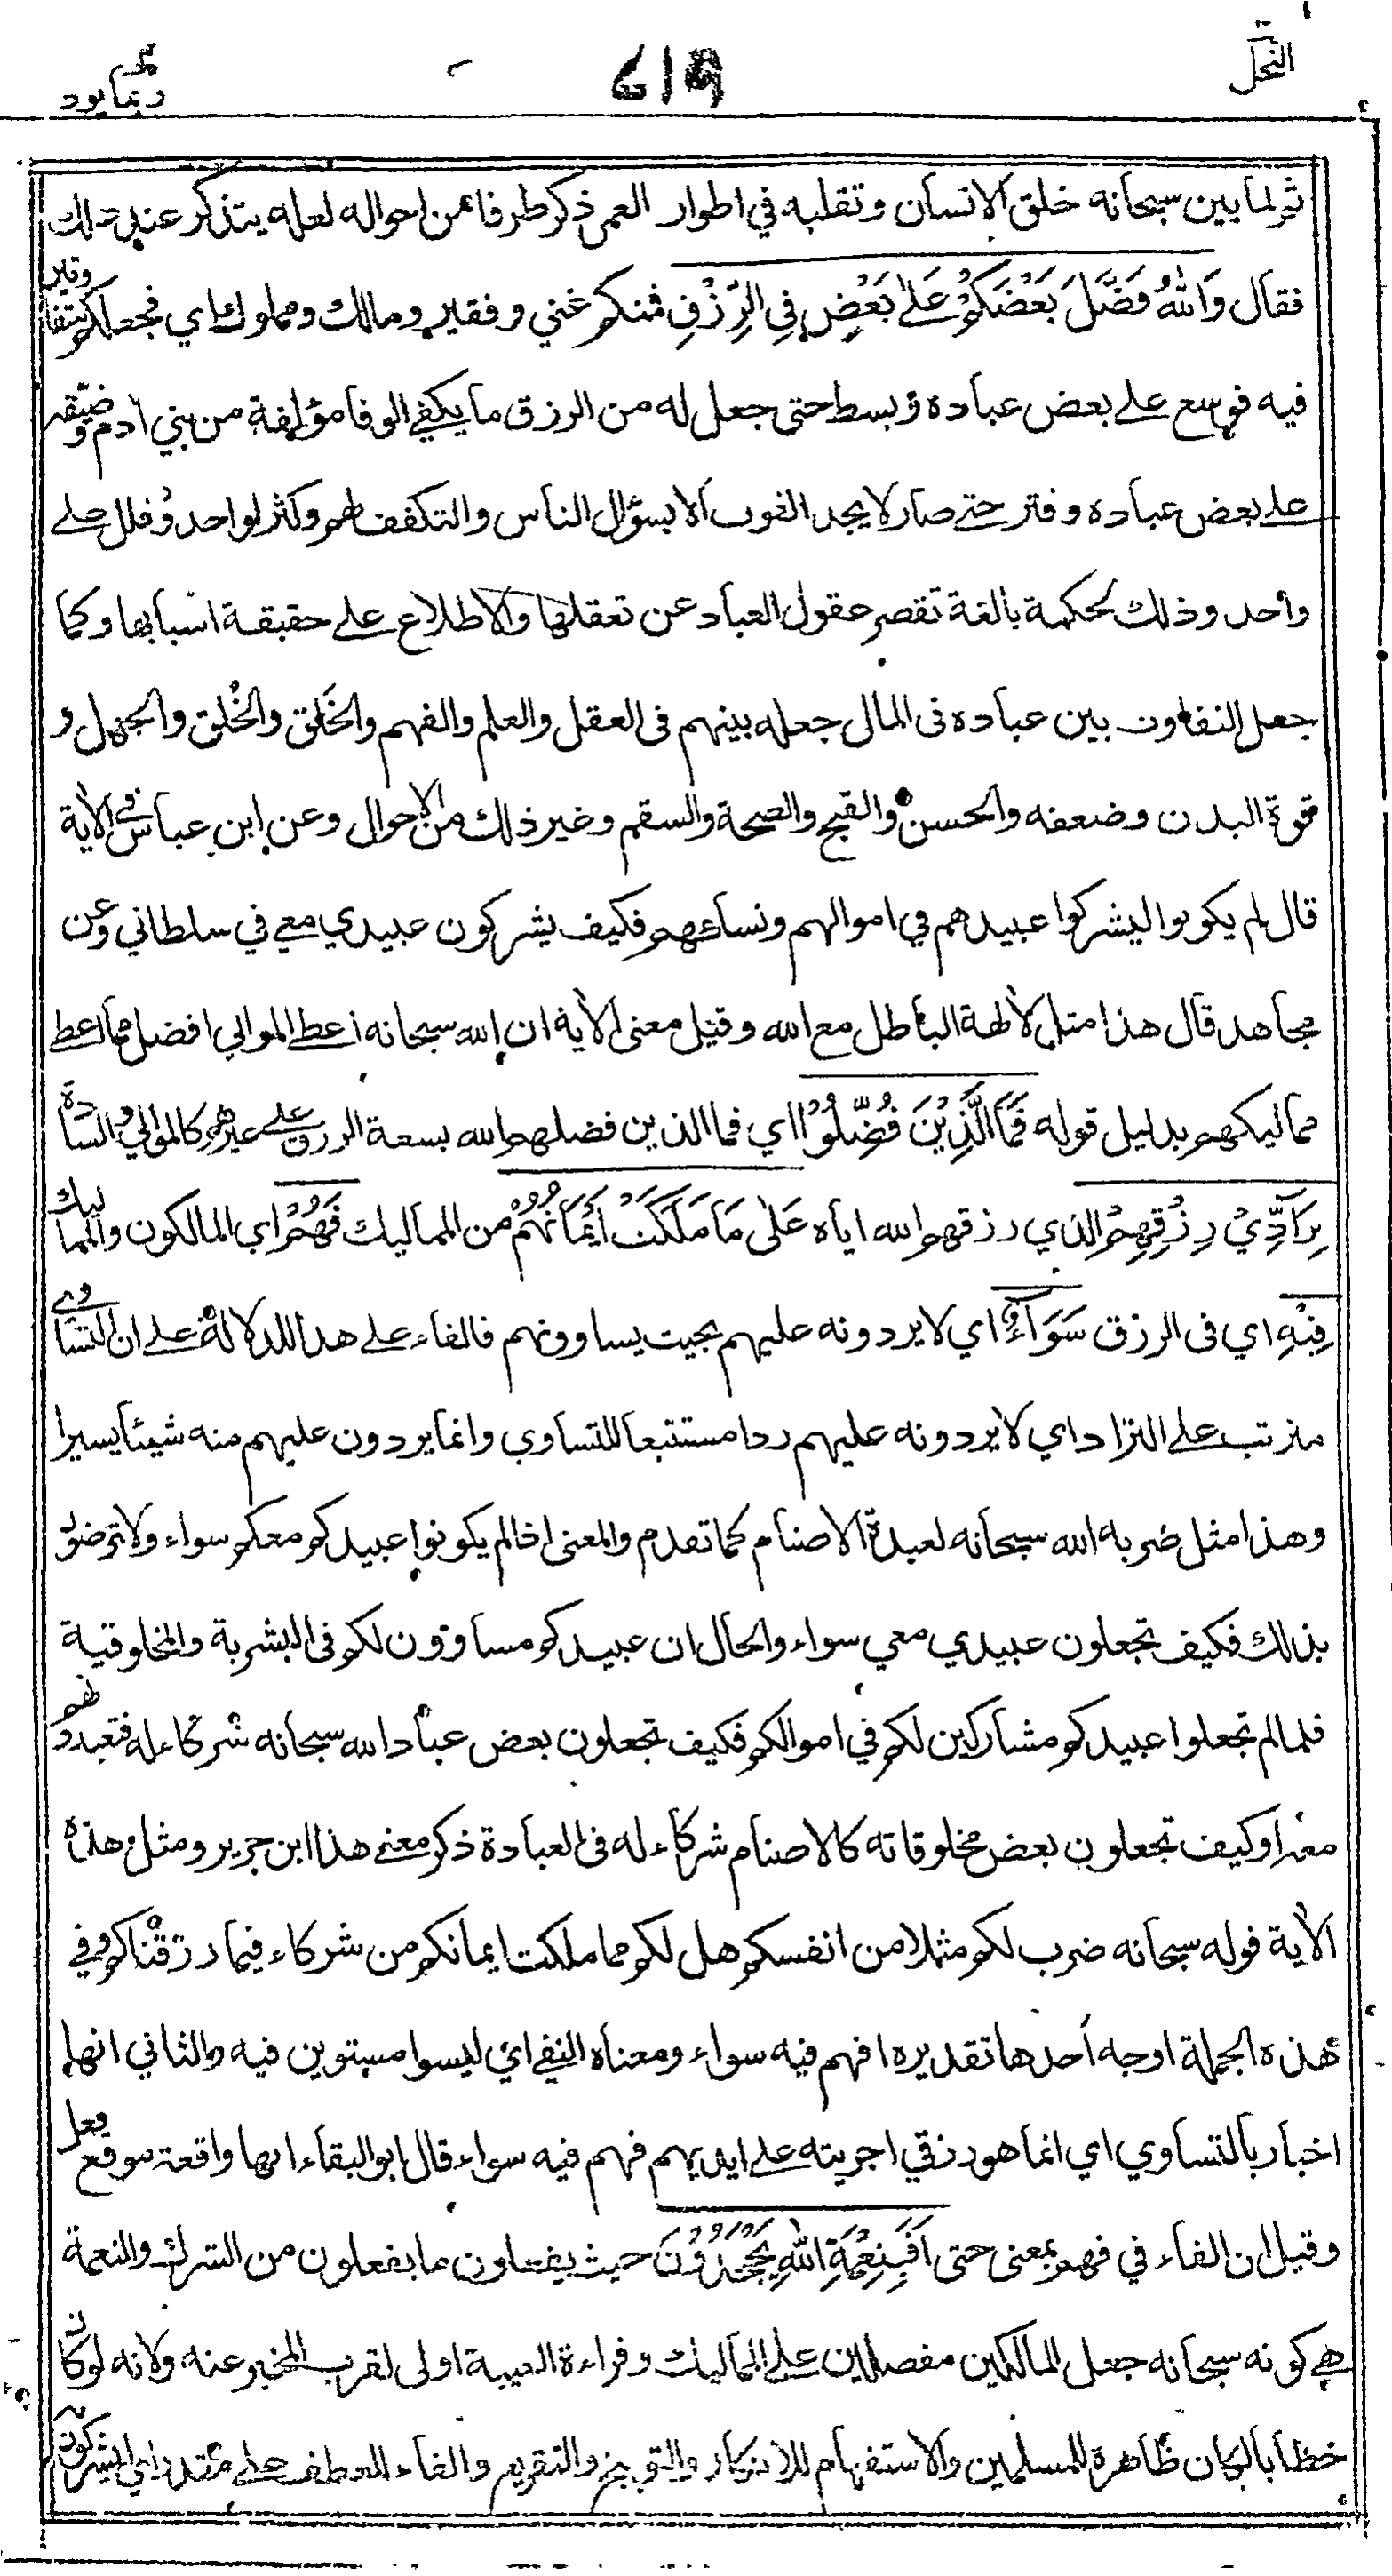 النحل
ربما يود
ثم لما بين سبحانه خلق الانسان وتقلبه في اطوار العمر ذكر طرفا من احواله لعله يتذكر عند ذلك
فقال وَاللهُ فَضَّلَ بَعْضَكُمْ عَلٰى بَعْضٍ فِي الرِّزْقِ فمنكم غني وفقير ومالك ومملوك اي فجعلكم متفاوتين
فيه فوسع على بعض عباده وبسط حتى جعل له من الرزق ما يكفي الوفا مؤلفة من بني ادم وضيقه
على بعض عباده وقتر حتى صار لا يجد القوت الا بسؤال الناس والتكفف لهم وكثر لواحد وقلل على
واحد وذلك لحكمة بالغة تقصر عقول العباد عن تعقلها والاطلاع على حقيقة اسبابها وكما
جعل التفاوت بين عباده فى المال جعله بينهم فى العقل والعلم والفهم والخَلق والخُلق والجهل و
قوة البدن وضعفه والحسن والقبح والصحة والسقم وغير ذلك من الاحوال وعن ابن عباس في الاية
قال لم يكونوا ليشركوا عبيدهم في اموالهم ونساءهم فكيف يشركون عبيدي معي في سلطاني وعن
مجاهد قال هذا مثل لالهة الباطل مع الله وقيل معنى الاية ان الله سبحانه اعطى الموالي افضل مما اعطى
مماليكهم بدليل قوله فَمَا الَّذِيْنَ فُضِّلُوْا اي فما الذين فضلهم الله بسعة الرزق على غيرهم كالموالي والسادة
بِرَآدِّيْ رِزْقِهِمْ الذي رزقهم الله اياه عَلٰى مَا مَلَكَتْ اَيْمَانُهُمْ من المماليك فَهُمْ اي المالكون والمماليك
فِيْهِ اي فى الرزق سَوَآءٌ اي لا يردونه عليهم بحيث يساوونهم فالفاء على هذا للدلالة على ان التساوي
مترتب على التراد اي لا يردونه عليهم ردا مستتبعا للتساوي وانما يردون عليهم منه شيئا يسيرا
وهذا مثل ضربه الله سبحانه لعبدة الاصنام كما تقدم والمعنى اذا لم يكونوا عبيدكم معكم سواء ولا ترضون
بذلك فكيف تجعلون عبيدي معي سواء والحال ان عبيدكم مساوون لكم فى البشرية والمخلوقية
فلما لم تجعلوا عبيدكم مشاركين لكم في اموالكم فكيف تجعلون بعض عباد الله سبحانه شركاء له فتعبدونهم
معه او كيف تجعلون بعض مخلوقاته كالاصنام شركاء له فى العبادة ذكر معنى هذا ابن جرير ومثل هذه
الاية قوله سبحانه ضرب لكم مثلا من انفسكم هل لكم مما ملكت ايمانكم من شركاء فيما رزقناكم وفي
هذه الجملة اوجه احدها تقديره افهم فيه سواء ومعناه النفي اي ليسوا مستوين فيه والثاني انها
اخبار بالتساوي اي انما هو رزقي اجريته على ايديهم فهم فيه سواء قال ابو البقاء انها واقعة موقع فعل
وقيل ان الفاء في فهم بمعنى حتى اَفَبِنِعْمَةِ اللهِ يَجْحَدُوْنَ حيث يفعلون ما يفعلون من الشرك والنعمة
هي كونه سبحانه جعل المالكين مفضلين على المماليك وقراءة الغيبة اولى لقرب المخبر عنه ولانه لو كان
خطابا لكان ظاهره للمسلمين والاستفهام للانكار والتوبيخ والتقريع والفاء للعطف على مقدر اي يشركون